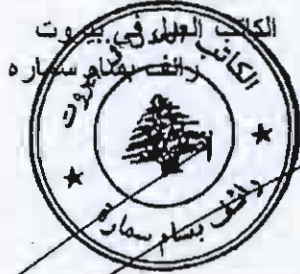 الكاتب العدل في بيروت
رائف بسام سماره
الكاتب العدل في بيروت
رائف بسام سمارة